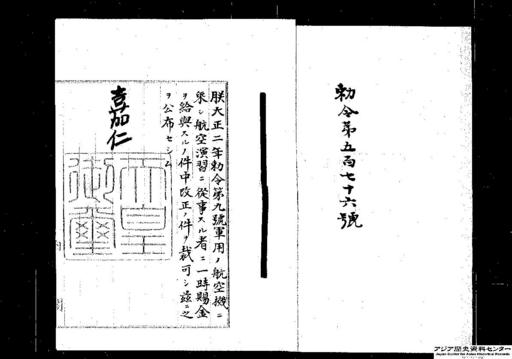 勅令第五百七十六號
朕大正二年勅令第九號軍用ノ航空機ニ
乗シ航空演習ニ從事スル者ニ一時賜金
ヲ給與スルノ件中改正ノ件ヲ裁可シ茲ニ之
ヲ公布セシム
嘉仁
天皇
御璽
アジア歴史資料センター
Japan Center for Asian Historical Records